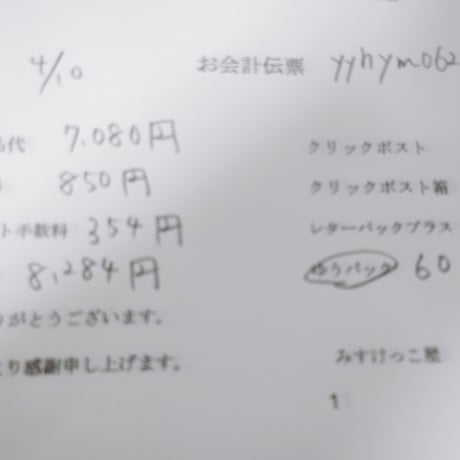 4/10
お会計伝票 yyhym062
代 7,080円
850円
ト手数料 354円
8,284円
がとうございます。
り感謝申し上げます。
クリックポスト
クリックポスト箱
レターパックプラス
ゆうパック 60
みすけっこ塾
1